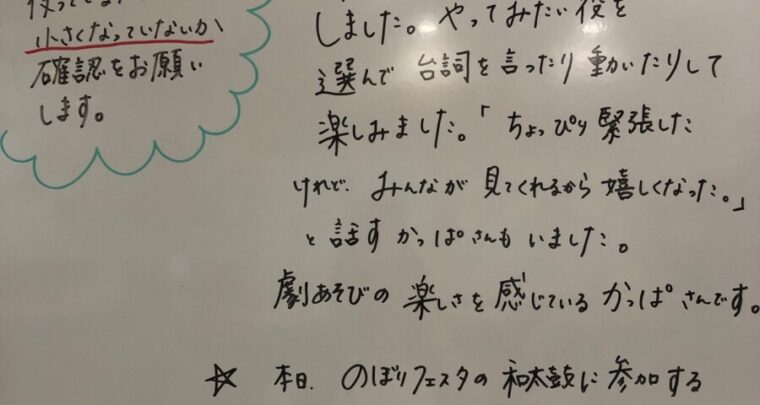 小さくなっていないか、
確認をお願い
します。
しました。やってみたい役を
選んで 台詞を言ったり動いたりして
楽しみました。「ちょっぴり緊張した
けれど、みんなが見てくれるから嬉しくなった。」
と話すかっぱさんもいました。
劇あそびの楽しさを感じているかっぱさんです。
☆ 本日、のぼりフェスタの和太鼓に参加する